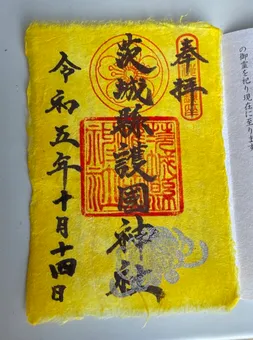 奉拝
茨城縣護國神社
令和五年十月十四日
茨城縣
神社
の御霊を祀り現在に至りま